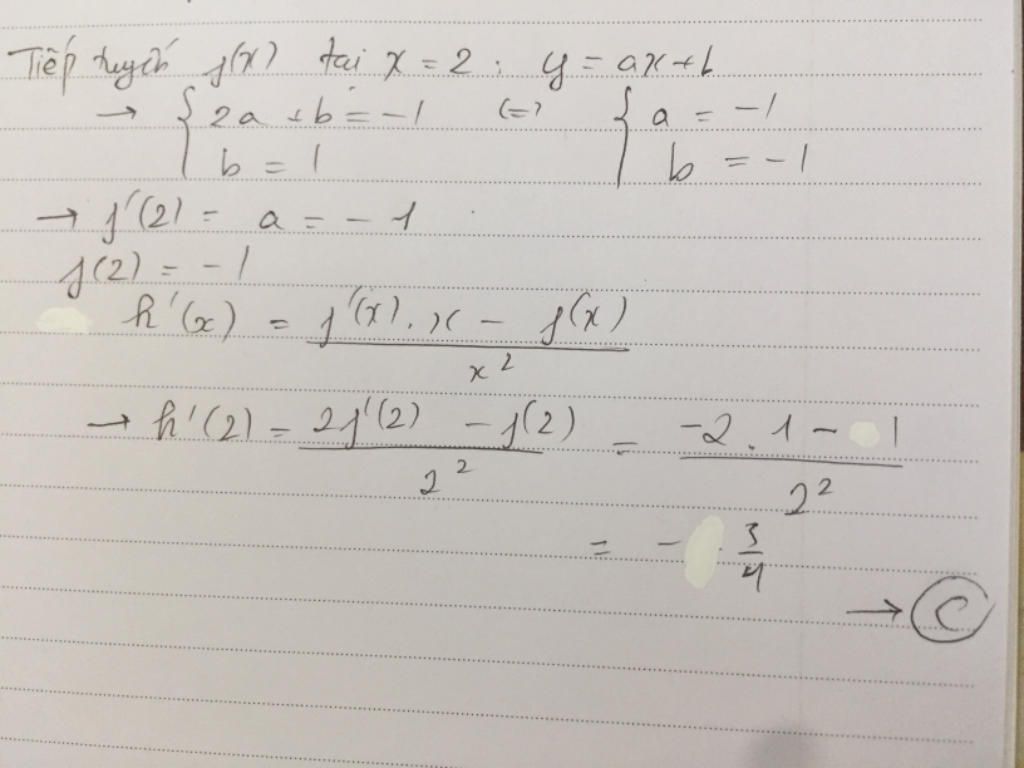 Tiếp tuyến f(x) tại x = 2 : y = ax + b
→ { 2a + b = -1 (=) { a = -1
b = 1 b = -1
→ f'(2) = a = -1
f(2) = -1
h'(x) = f'(x).x - f(x) / x²
→ h'(2) = 2f'(2) - f(2) / 2² = -2.1 - 1 / 2²
= - 3/4
→ C